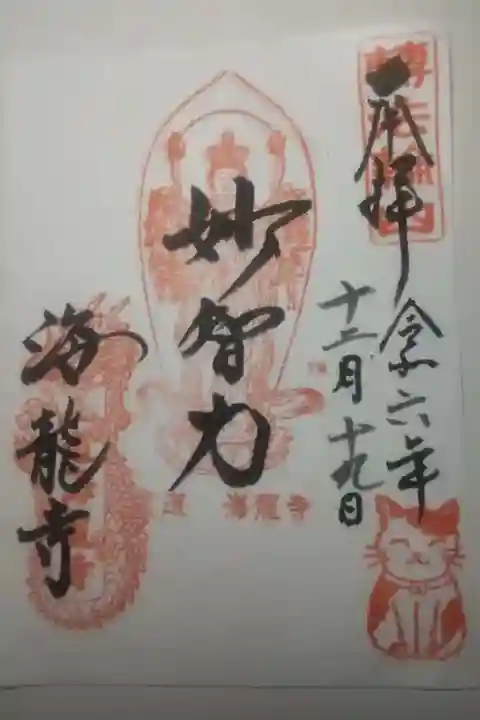 奉拝
令和六年
十二月十九日
妙智力
海龍寺
海龍寺